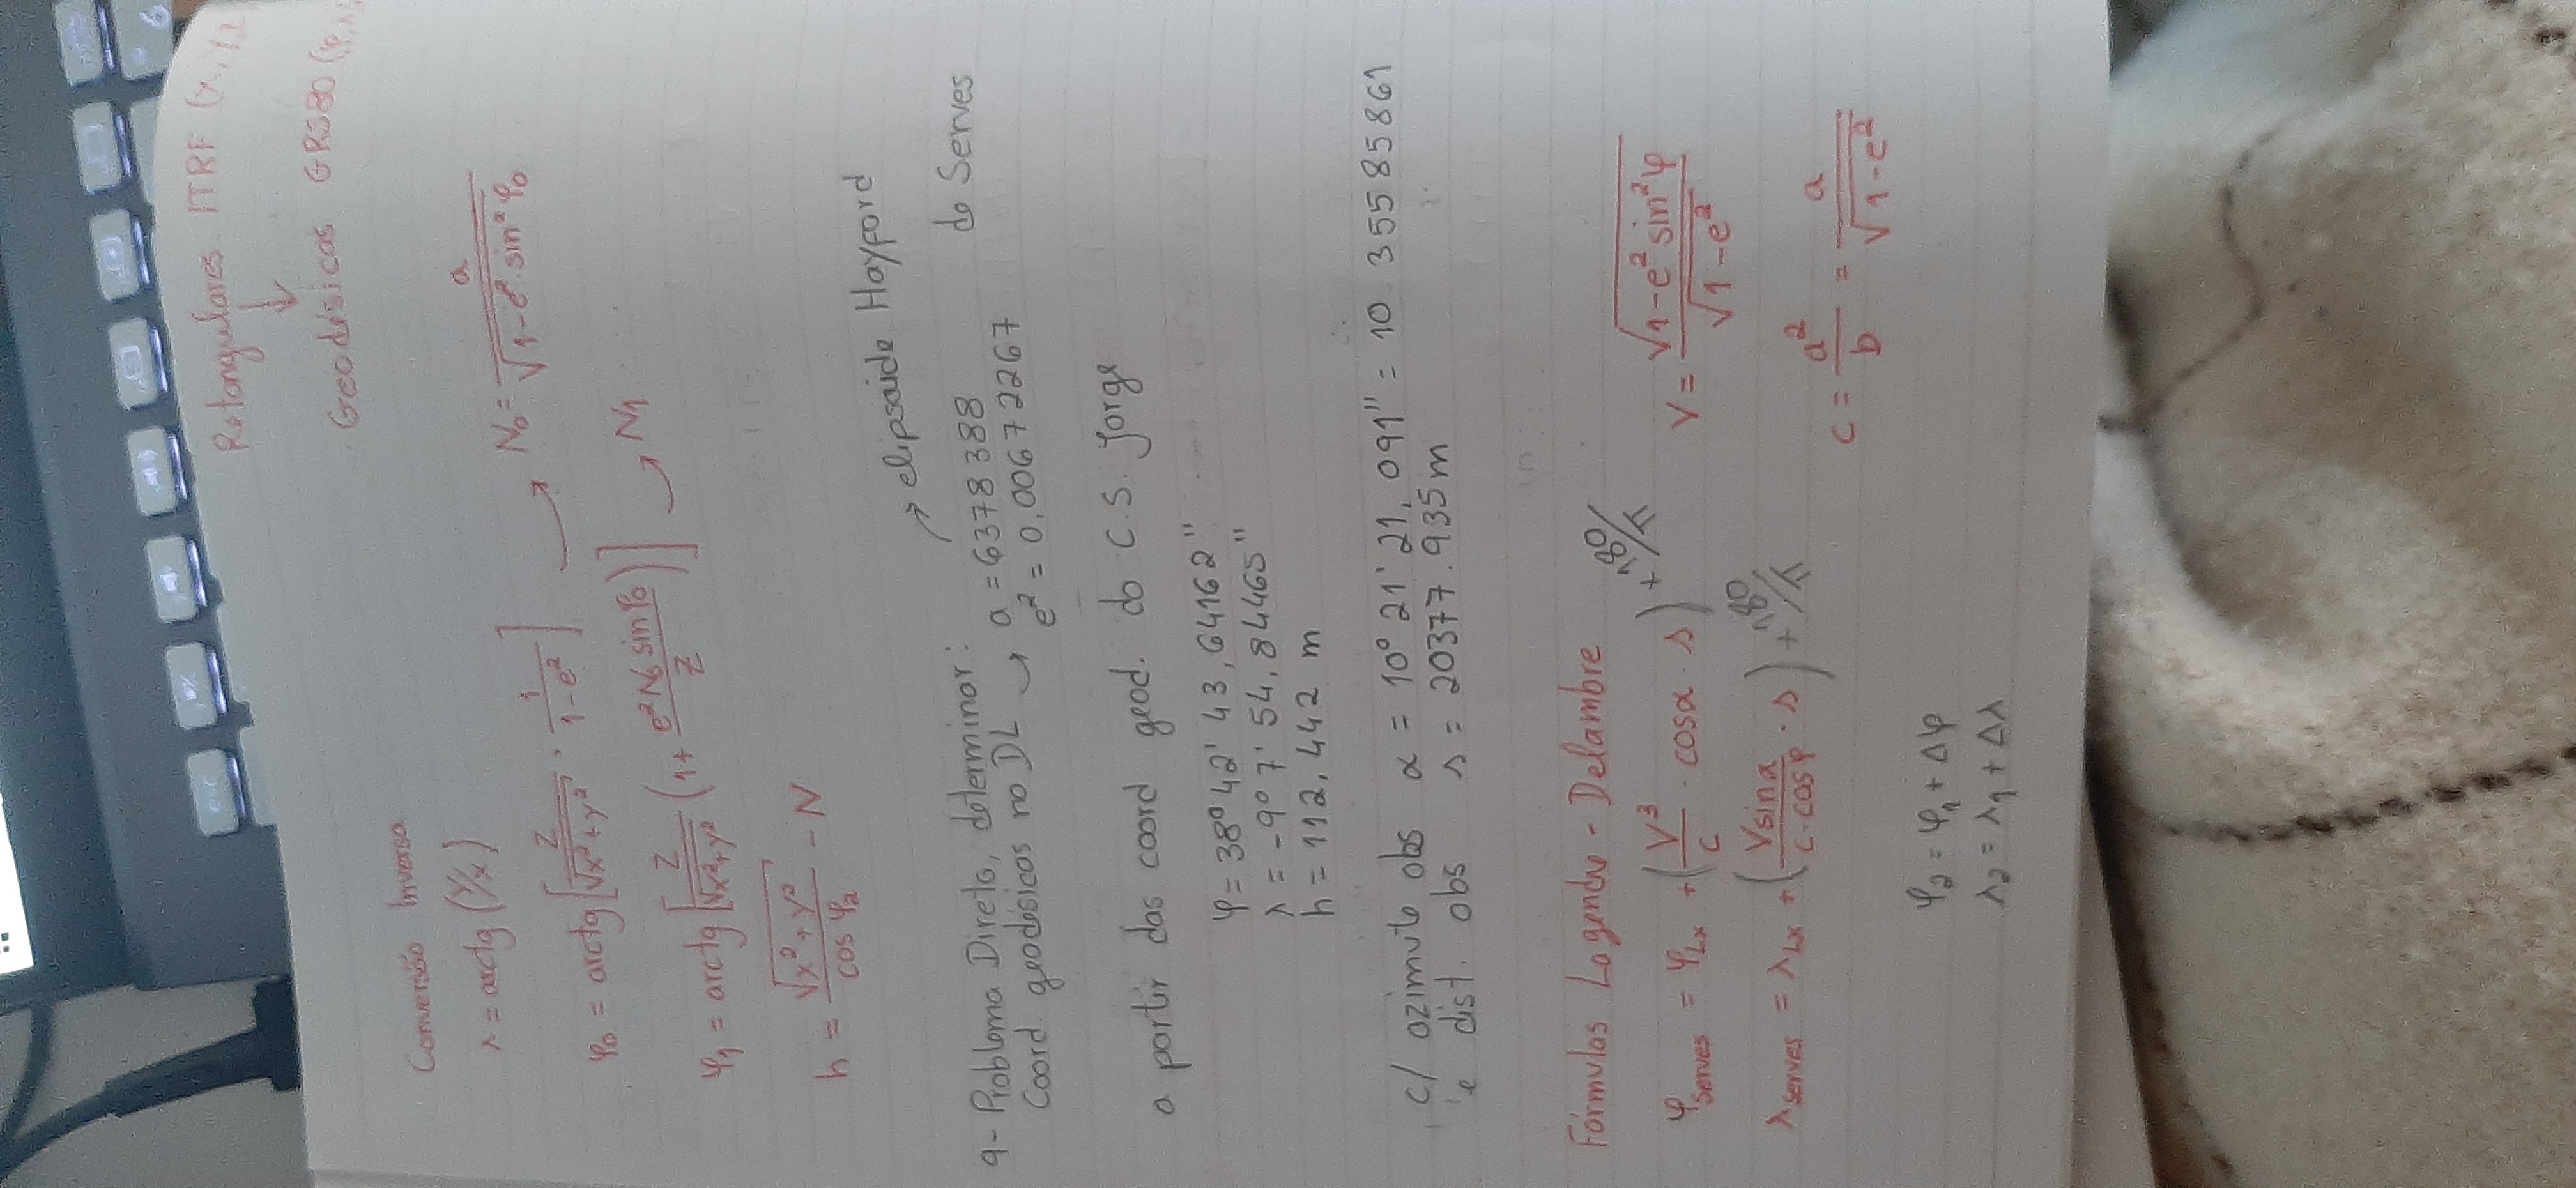 esc
6
Retangulares ITRF (x, y, z
↓
Geodésicas GRS80 (φ, λ
Conversão Inversa
λ = arctg (y/x)
φ₀ = arctg [Z/√(x²+y²) · 1/(1-e²)] → N₀ = a/√(1-e² sin² φ₀)
φ₁ = arctg [Z/√(x²+y²) (1 + e² N₀ sin φ₀/Z)] → N₁
h = √(x²+y²)/cos φ₂ - N
→ elipsoide Hayford
9- Problema Direto, determinar: a = 6378388 de Serves
Coord. geodésicas no DL → e² = 0,00672267
a partir das coord geod. do C.S. Jorge
φ = 38° 42' 43,64162"
λ = -9° 7' 54,84465"
h = 112,442 m
c/ azimute obs α = 10° 21' 21,091" = 10 35585861
e dist. obs s = 20377.935m
Fórmulas Legendre - Delambre
φServes = φLx + (V³/c · cosα · s) + 180/π V = √(1-e² sin²φ)/√(1-e²)
λServes = λLx + (V sinα/c·cosφ · s) + 180/π
c = a²/b = a/√(1-e²)
φ₂ = φ₁ + Δφ
λ₂ = λ₁ + Δλ